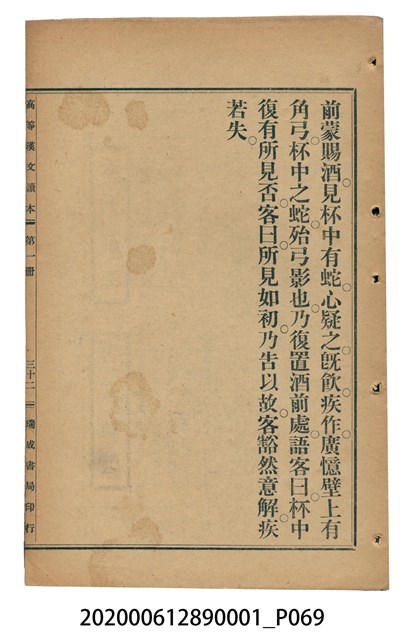 前蒙賜酒。見杯中有蛇。心疑之。旣飮。疾作。廣憶壁上有
角弓。杯中之蛇。殆弓影也。乃復置酒前處。語客曰。杯中
復有所見否。客曰。所見如初。乃告以故。客豁然意解。疾
若失。
高等漢文讀本 第一册 三十二 瑞成書局印行
202000612890001_P069